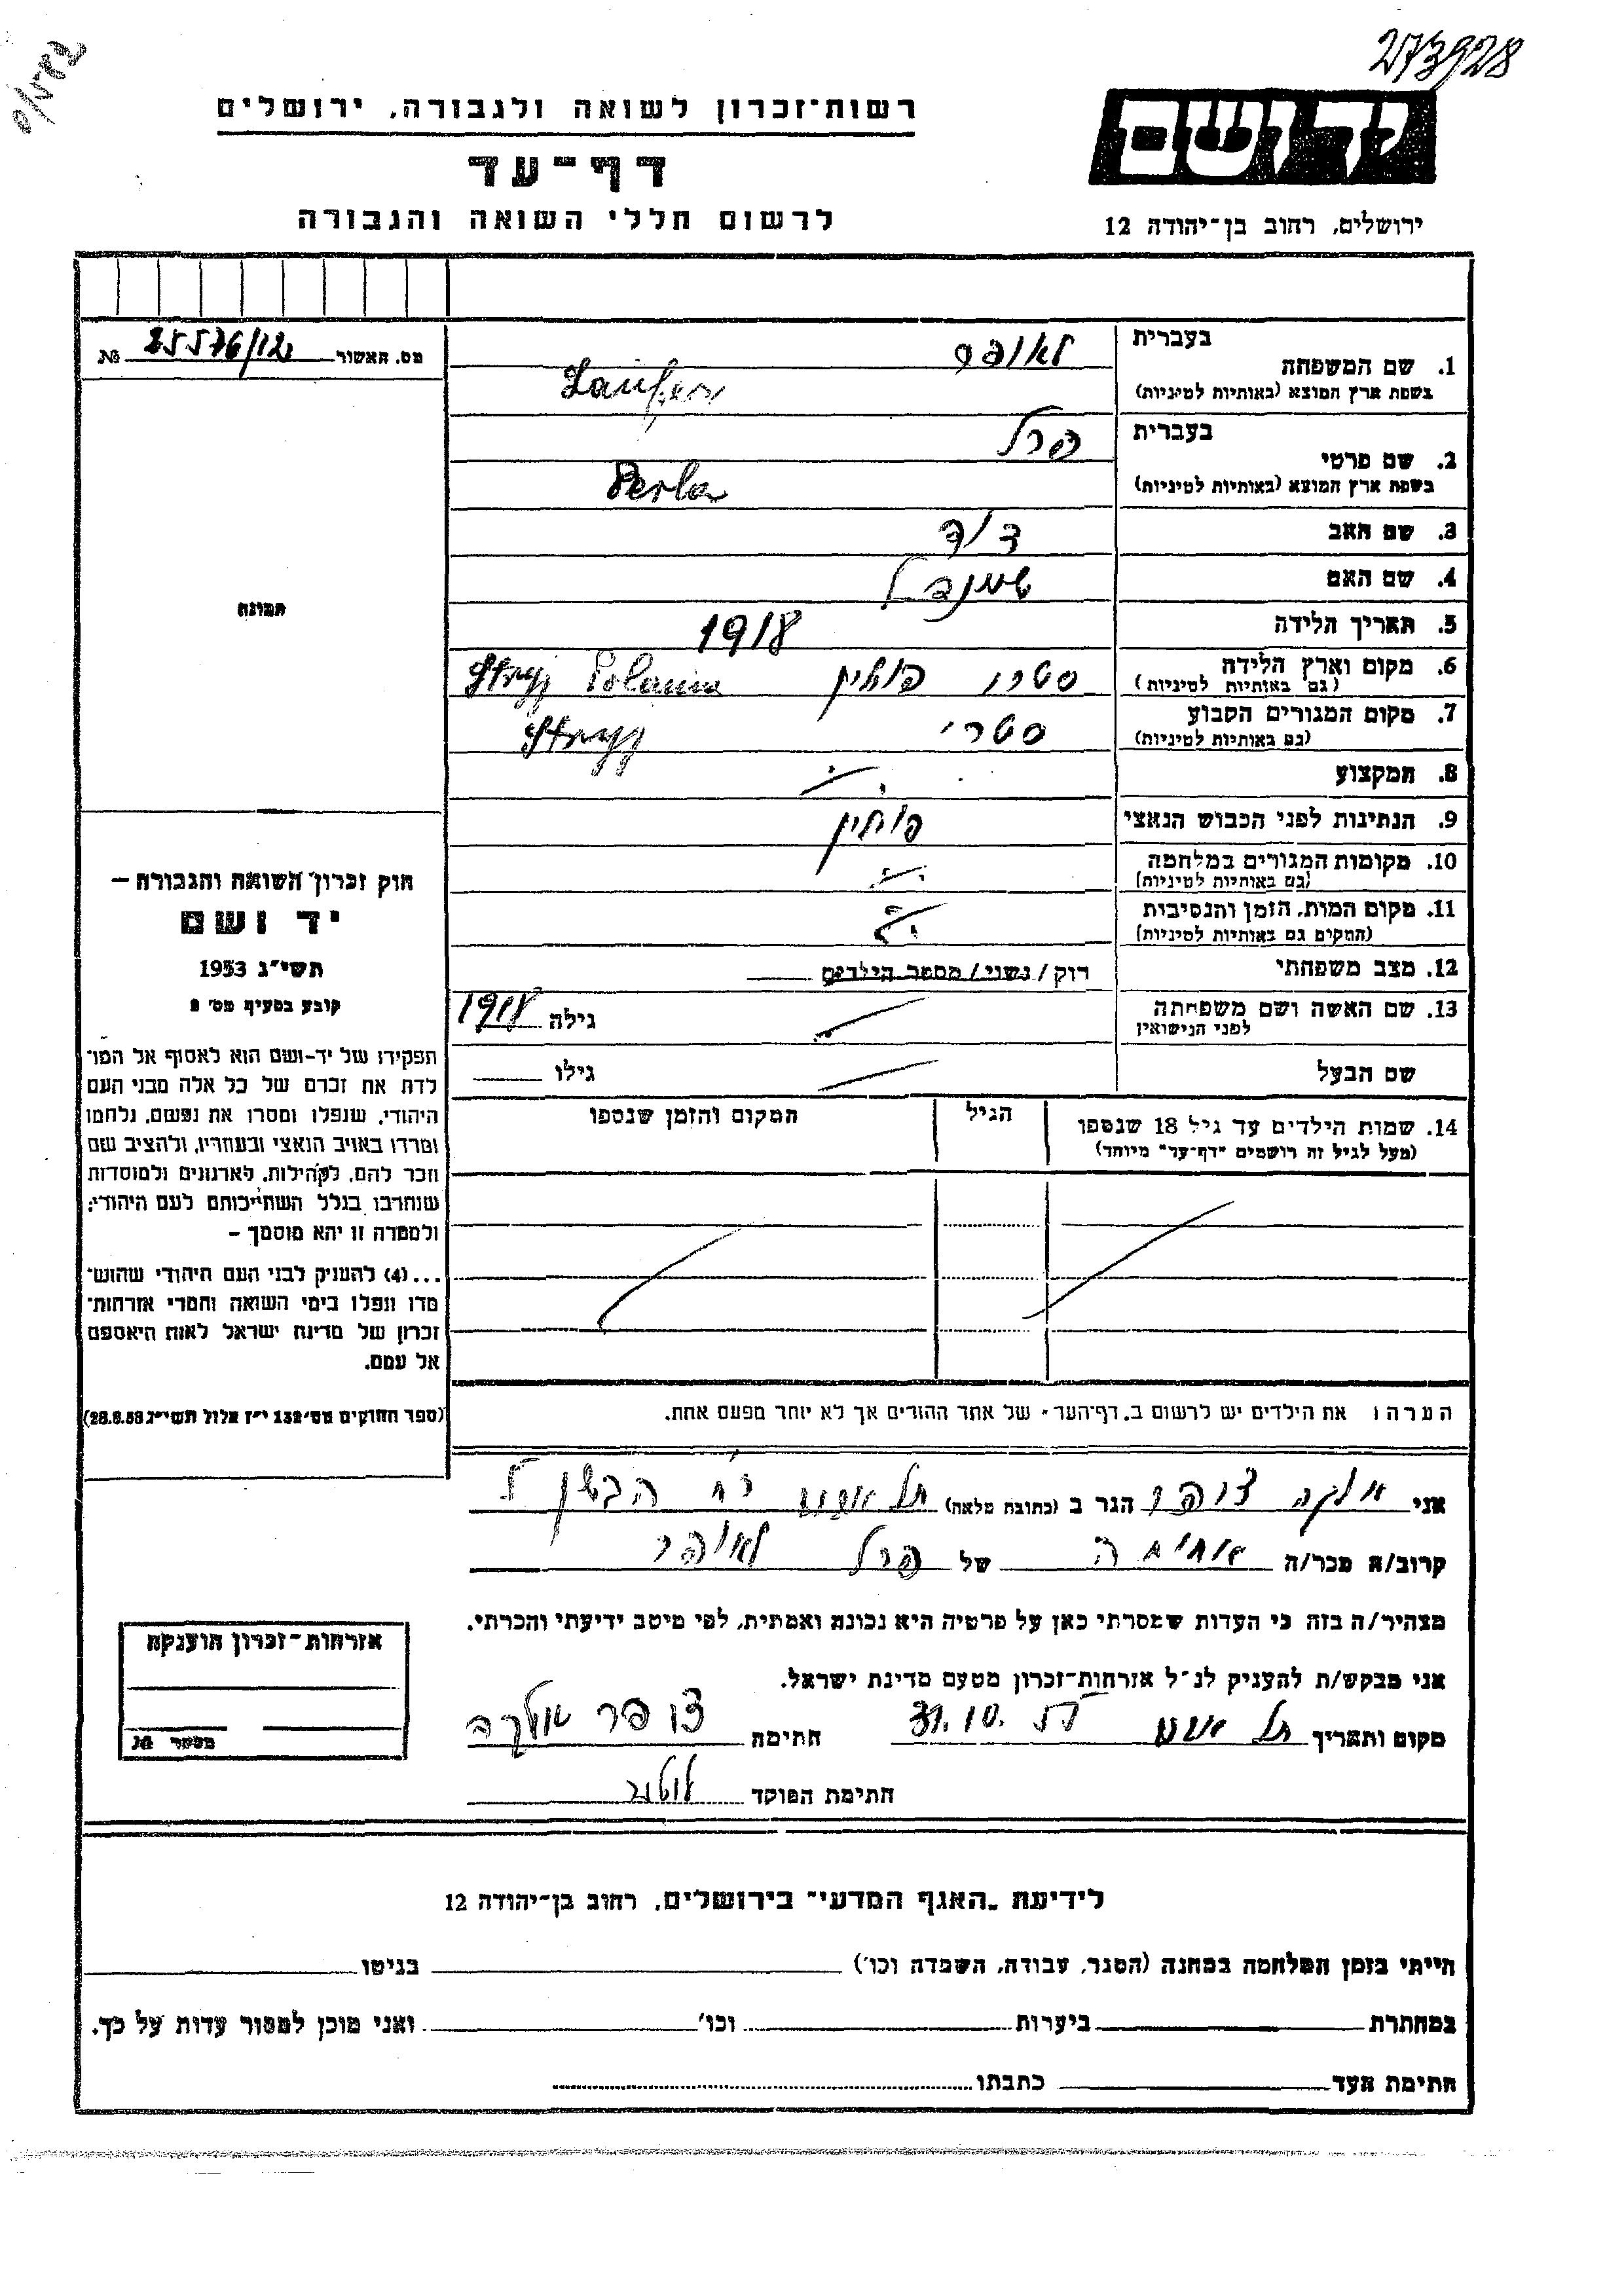 273928
רשות־זכרון לשואה ולגבורה, ירושלים
דף־עד
לרשום חללי השואה והגבורה
ידושם
ירושלים, רחוב בן־יהודה 12
מס. האשור 25576/121 №
תמונה
חוק זכרון השואה והגבורה —
יד ושם
תשי״ג 1953
קובע בסעיף מס׳ 2
תפקידו של יד-ושם הוא לאסוף אל המו־
לדת את זכרם של כל אלה מבני העם
היהודי, שנפלו ומסרו את נפשם, נלחמו
ומרדו באויב הנאצי ובעוזריו, ולהציב שם
וזכר להם, לקהילות, לארגונים ולמוסדות
שנחרבו בגלל השתייכותם לעם היהודי;
ולמטרה זו יהא מוסמך —
...(4) להעניק לבני העם היהודי שהוש־
מדו ונפלו בימי השואה והמרי אזרחות־
זכרון של מדינת ישראל לאות היאספם
אל עמם.
(ספר החוקים מס׳ 132 י״ז אלול תשי״ג 28.8.53)
בעברית לאופר
1. שם המשפחה
בשפת ארץ המוצא (באותיות לטיניות) Laufer
בעברית פרל
2. שם פרטי
בשפת ארץ המוצא (באותיות לטיניות) Perla
3. שם האב דוד
4. שם האם
5. תאריך הלידה 1918
6. מקום וארץ הלידה סטרי פולין Stryj Polania
(גם באותיות לטיניות)
7. מקום המגורים הקבוע סטרי Stryj
(גם באותיות לטיניות)
8. המקצוע
9. הנתינות לפני הכבוש הנאצי פולין
10. מקומות המגורים במלחמה
(גם באותיות לטיניות)
11. מקום המות, הזמן והנסיבות
(המקום גם באותיות לטיניות)
12. מצב משפחתי רוק/נשוי/מספר הילדים
13. שם האשה ושם משפחתה גילה 1918
לפני הנישואין
שם הבעל גילו
14. שמות הילדים עד גיל 18 שנספו הגיל המקום והזמן שנספו
(מעל לגיל זה רושמים ״דף־עד״ מיוחד)
הערה: את הילדים יש לרשום ב״דף־העד״ של אחד ההורים אך לא יותר מפעם אחת.
אני אלקה צופר הגר ב (כתובת מלאה) תל אביב רח הבשן 7
קרוב/ה מכר/ה של פרל לאופר
מצהיר/ה בזה כי העדות שמסרתי כאן על פרטיה היא נכונה ואמתית, לפי מיטב ידיעתי והכרתי.
אני מבקש/ת להעניק לנ״ל אזרחות־זכרון מטעם מדינת ישראל.
מקום ותאריך תל אביב 31.10. חתימה צופר אלקה
חתימת הפוקד
אזרחות־זכרון הוענקה
מספר №
לידיעת ״האגף המדעי״ בירושלים, רחוב בן־יהודה 12
הייתי בזמן המלחמה במחנה (הסגר, עבודה, השמדה וכו׳) בגיטו
במחתרת ביערות וכו׳ ואני מוכן למסור עדות על כך.
חתימת העד כתבתו